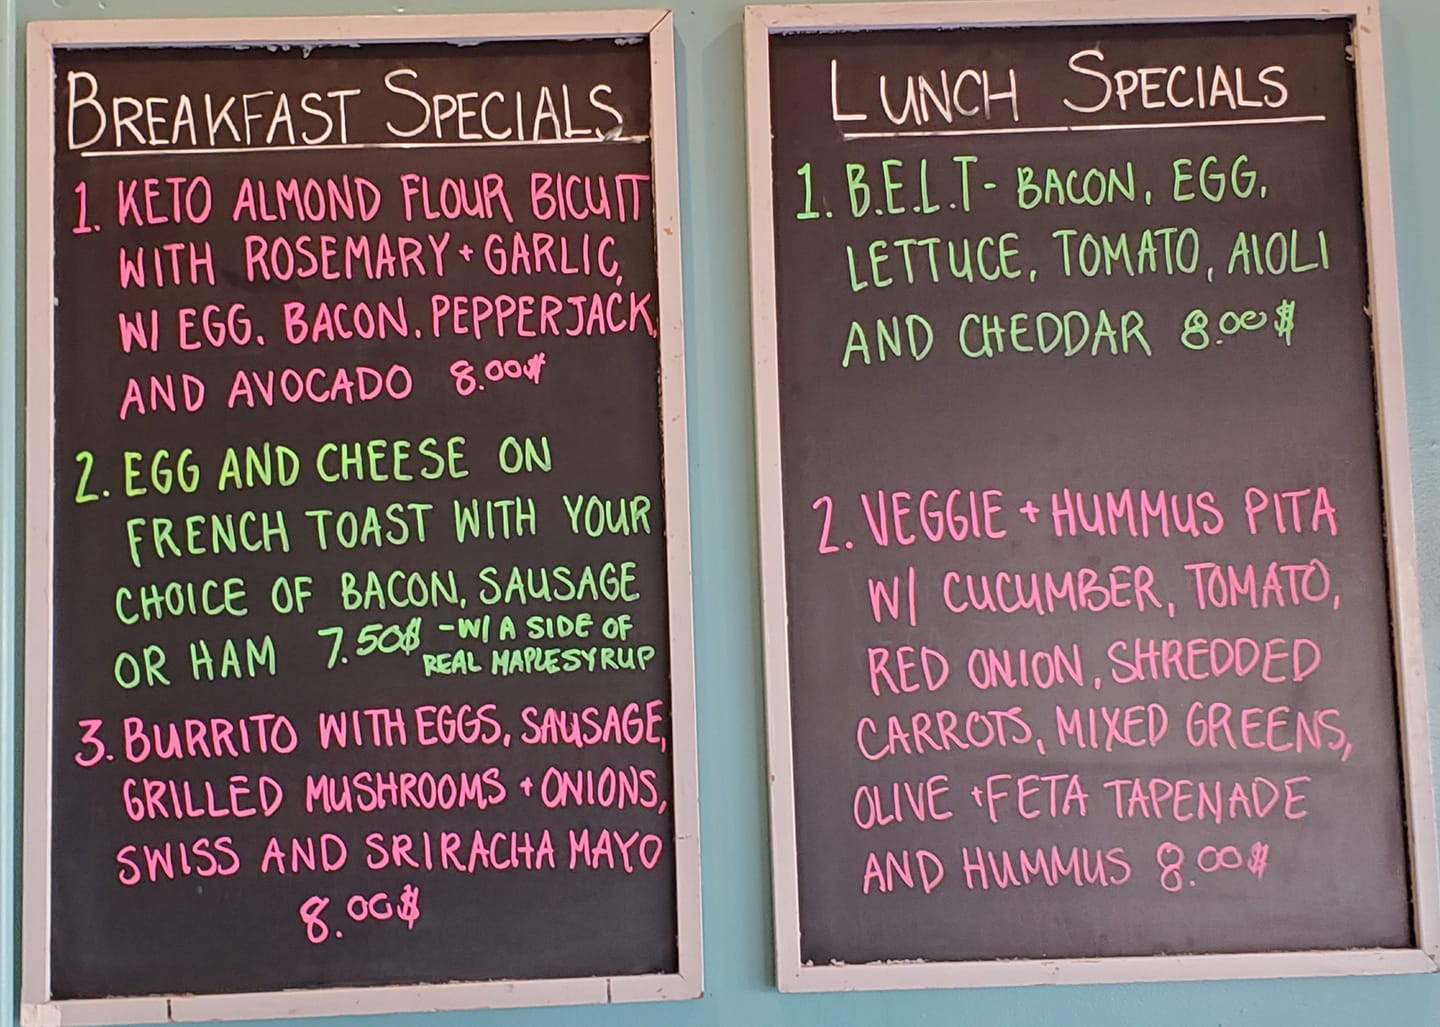 BREAKFAST SPECIALS
1. KETO ALMOND FLOUR BICUIT
WITH ROSEMARY + GARLIC,
W/ EGG, BACON, PEPPERJACK,
AND AVOCADO 8.00$
2. EGG AND CHEESE ON
FRENCH TOAST WITH YOUR
CHOICE OF BACON, SAUSAGE
OR HAM 7.50$ -W/ A SIDE OF
REAL MAPLE SYRUP
3. BURRITO WITH EGGS, SAUSAGE,
GRILLED MUSHROOMS + ONIONS,
SWISS AND SRIRACHA MAYO
8.00$
LUNCH SPECIALS
1. B.E.L.T- BACON, EGG,
LETTUCE, TOMATO, AIOLI
AND CHEDDAR 8.00$
2. VEGGIE + HUMMUS PITA
W/ CUCUMBER, TOMATO,
RED ONION, SHREDDED
CARROTS, MIXED GREENS,
OLIVE + FETA TAPENADE
AND HUMMUS 8.00$